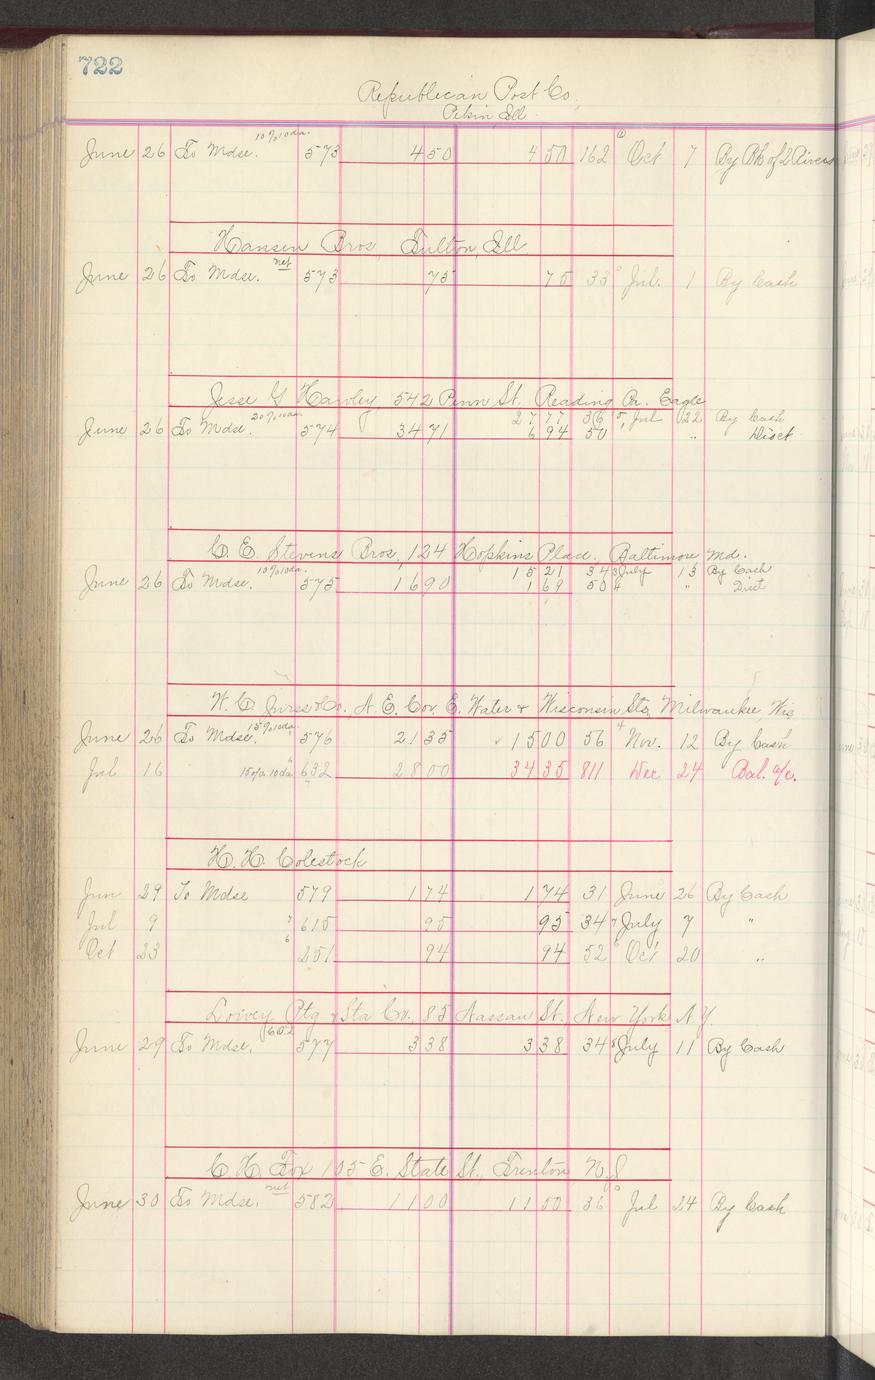 722
Republican Post Co.,
Pekin, Ill.
June 26 To Mdse. 10% 10 da. 573 450 450 162 Oct 7 By Bk of 2 Rivers
Hansen Bros, Fulton, Ill.
June 26 To Mdse. net 573 75 75 33 Jul. 1 By Cash
Jesse G Hawley, 542 Penn St. Reading Pa. Eagle
June 26 To Mdse. 20% 10 da. 574 3471 2777 36 Jul 22 By Cash
694 50 " Disct
C. E. Stevens Bros, 124 Hopkins Place. Baltimore Md.
June 26 To Mdse. 10% 10 da. 575 1690 1521 34 July 13 By Cash
169 50 " Disct
W. C. & Co., N. E. Cor. E. Water & Wisconsin Sts, Milwaukee, Wis
June 26 To Mdse. 15% 10 da. 576 2135 1500 56 Nov. 12 By Cash
Jul 16 15% 10 da 632 2800 3435 811 Dec 24 Bal. a/c.
H. H. Colestock
Jun 29 To Mdse 579 174 174 31 June 26 By Cash
Jul 9 7 615 95 95 34 July 7 "
Oct 23 6 251 94 94 52 Oct 20 "
Loivey Ptg & Sta Co., 85 Nassau St., New York N Y
June 29 To Mdse. 577 338 338 34 July 11 By Cash
C. H. Fox 105 E. State St., Trenton, N. J.
June 30 To Mdse. net 582 1100 1100 36 Jul 24 By Cash